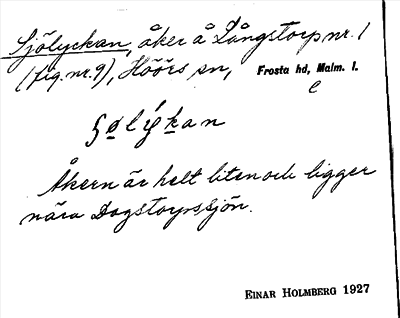 Sjölyckan, åker å Långstorp nr. 1
(fig. nr. 9), Höörs sn, Frosta hd, Malm. l.
e
Åkern är helt liten och ligger
nära Dagstorpssjön.
EINAR HOLMBERG 1927